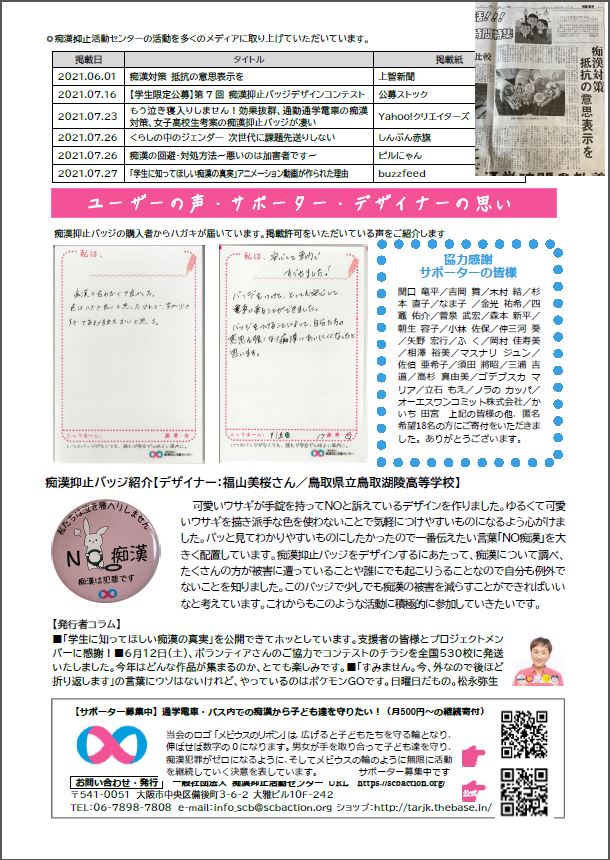 ◎痴漢抑止活動センターの活動を多くのメディアに取り上げていただいています。
掲載日 タイトル 掲載紙
2021.06.01 痴漢対策 抵抗の意思表示を 上智新聞
2021.07.16 【学生限定公募】第7回 痴漢抑止バッジデザインコンテスト 公募ストック
2021.07.23 もう泣き寝入りしません！効果抜群、通勤通学電車の痴漢対策、女子高校生考案の痴漢抑止バッジが凄い Yahoo!クリエイターズ
2021.07.26 くらしの中のジェンダー 次世代に課題先送りしない しんぶん赤旗
2021.07.26 痴漢の回避・対処方法～悪いのは加害者です～ ピルにゃん
2021.07.27 「学生に知ってほしい痴漢の真実」アニメーション動画が作られた理由 buzzfeed
痴漢対策
抵抗の意思表示を
ユーザーの声・サポーター・デザイナーの思い
痴漢抑止バッジの購入者からハガキが届いています。掲載許可をいただいている声をご紹介します
私は、
ニックネーム：
私は、安心して電車に
バッジをつけて、とっても安心して
電車に乗ることができました。
協力感謝
サポーターの皆様
関口 竜平／吉岡 舞／木村 結／杉
本 直子／なま子 ／金光 祐希／四
竈 佑介／菅泉 武宏／森本 新平／
朝生 容子／小林 佐保／仲三河 葵
／矢野 宏行／ふ く／岡村 佳寿美
／相澤 裕美／マスナリ ジュン／
佐伯 亜希子／須田 將昭／三浦 吉
道／高杉 真由美／ゴデブスカ マ
リア／立石 もえ／ノラの カッパ／
オーエスワンコミット株式会社／か
いち 田宮 上記の皆様の他、匿名
希望18名の方にご寄付をいただきま
した。ありがとうございます。
痴漢抑止バッジ紹介【デザイナー：福山美桜さん／鳥取県立鳥取湖陵高等学校】
私たちは泣き寝入りしません
NO痴漢
痴漢は犯罪です
可愛いウサギが手錠を持ってNOと訴えているデザインを作りました。ゆるくて可愛
いウサギを描き派手な色を使わないことで気軽につけやすいものになるよう心がけま
した。パッと見てわかりやすいものにしたかったので一番伝えたい言葉「NO痴漢」を大
きく配置しています。痴漢抑止バッジをデザインするにあたって、痴漢について調べ、
たくさんの方が被害に遭っていることや誰にでも起こりうることなので自分も例外で
ないことを知りました。このバッジで少しでも痴漢の被害を減らすことができればいい
なと考えています。これからもこのような活動に積極的に参加していきたいです。
【発行者コラム】
■「学生に知ってほしい痴漢の真実」を公開できてホッとしています。支援者の皆様とプロジェクトメン
バーに感謝！■6月12日(土)、ボランティアさんのご協力でコンテストのチラシを全国530校に発送
いたしました。今年はどんな作品が集まるのか、とても楽しみです。■「すみません。今、外なので後ほど
折り返します」の言葉にウソはないけれど、やっているのはポケモンGOです。日曜日だもの。松永弥生
【サポーター募集中】通学電車・バス内での痴漢から子ども達を守りたい！（月500円～の継続寄付）
当会のロゴ「メビウスのリボン」は、広げると子どもたちを守る輪となり、
伸ばせば数字の0になります。男女が手を取り合って子ども達を守り、
痴漢犯罪がゼロになるように、そしてメビウスの輪のように無限に活動
を継続していく決意を表しています。 サポーター募集中です
お問い合わせ・発行 一般社団法人 痴漢抑止活動センター URL https://scbaction.org/
〒541-0051 大阪市中央区備後町3-6-2 大雅ビル10F-242
TEL:06-7898-7808 e-mail:info_scb@scbaction.org ショップ:http://tarjk.thebase.in/
公式